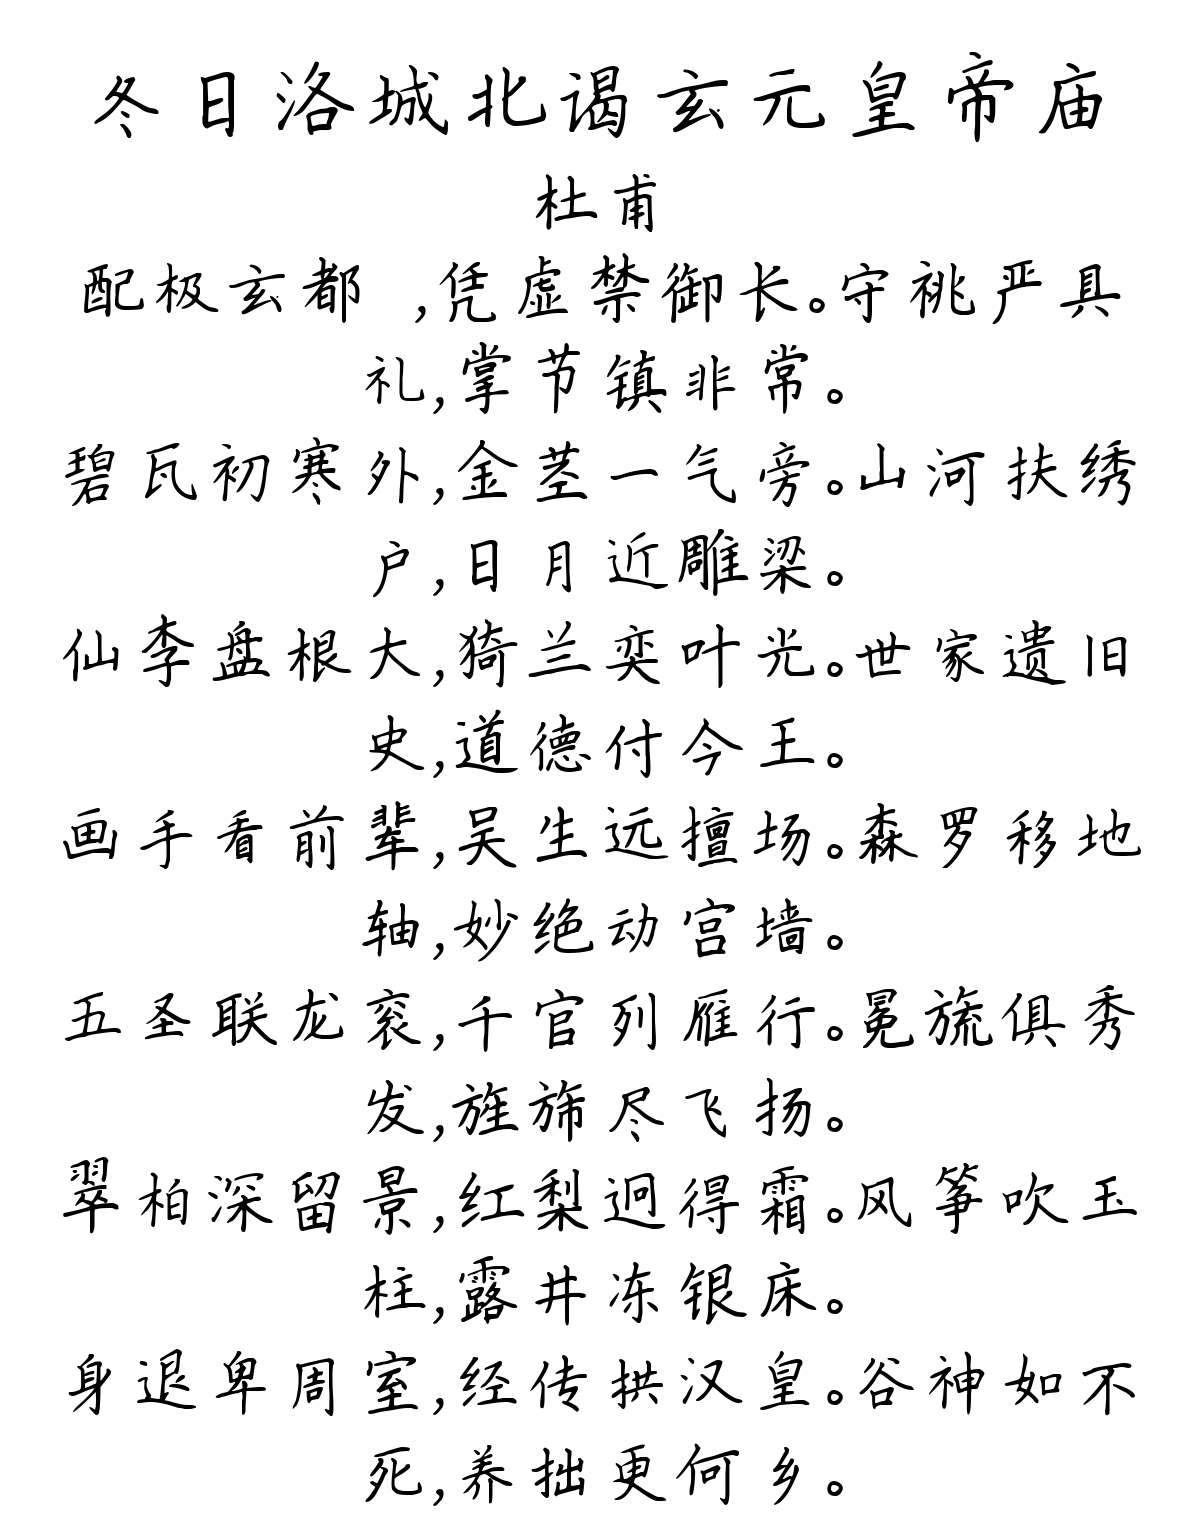 冬日洛城北谒玄元皇帝庙
杜甫
配极玄都 ,凭虚禁御长。守祧严具
礼,掌节镇非常。
碧瓦初寒外,金茎一气旁。山河扶绣
户,日月近雕梁。
仙李盘根大,猗兰奕叶光。世家遗旧
史,道德付今王。
画手看前辈,吴生远擅场。森罗移地
轴,妙绝动宫墙。
五圣联龙衮,千官列雁行。冕旒俱秀
发,旌旆尽飞扬。
翠柏深留景,红梨迥得霜。风筝吹玉
柱,露井冻银床。
身退卑周室,经传拱汉皇。谷神如不
死,养拙更何乡。